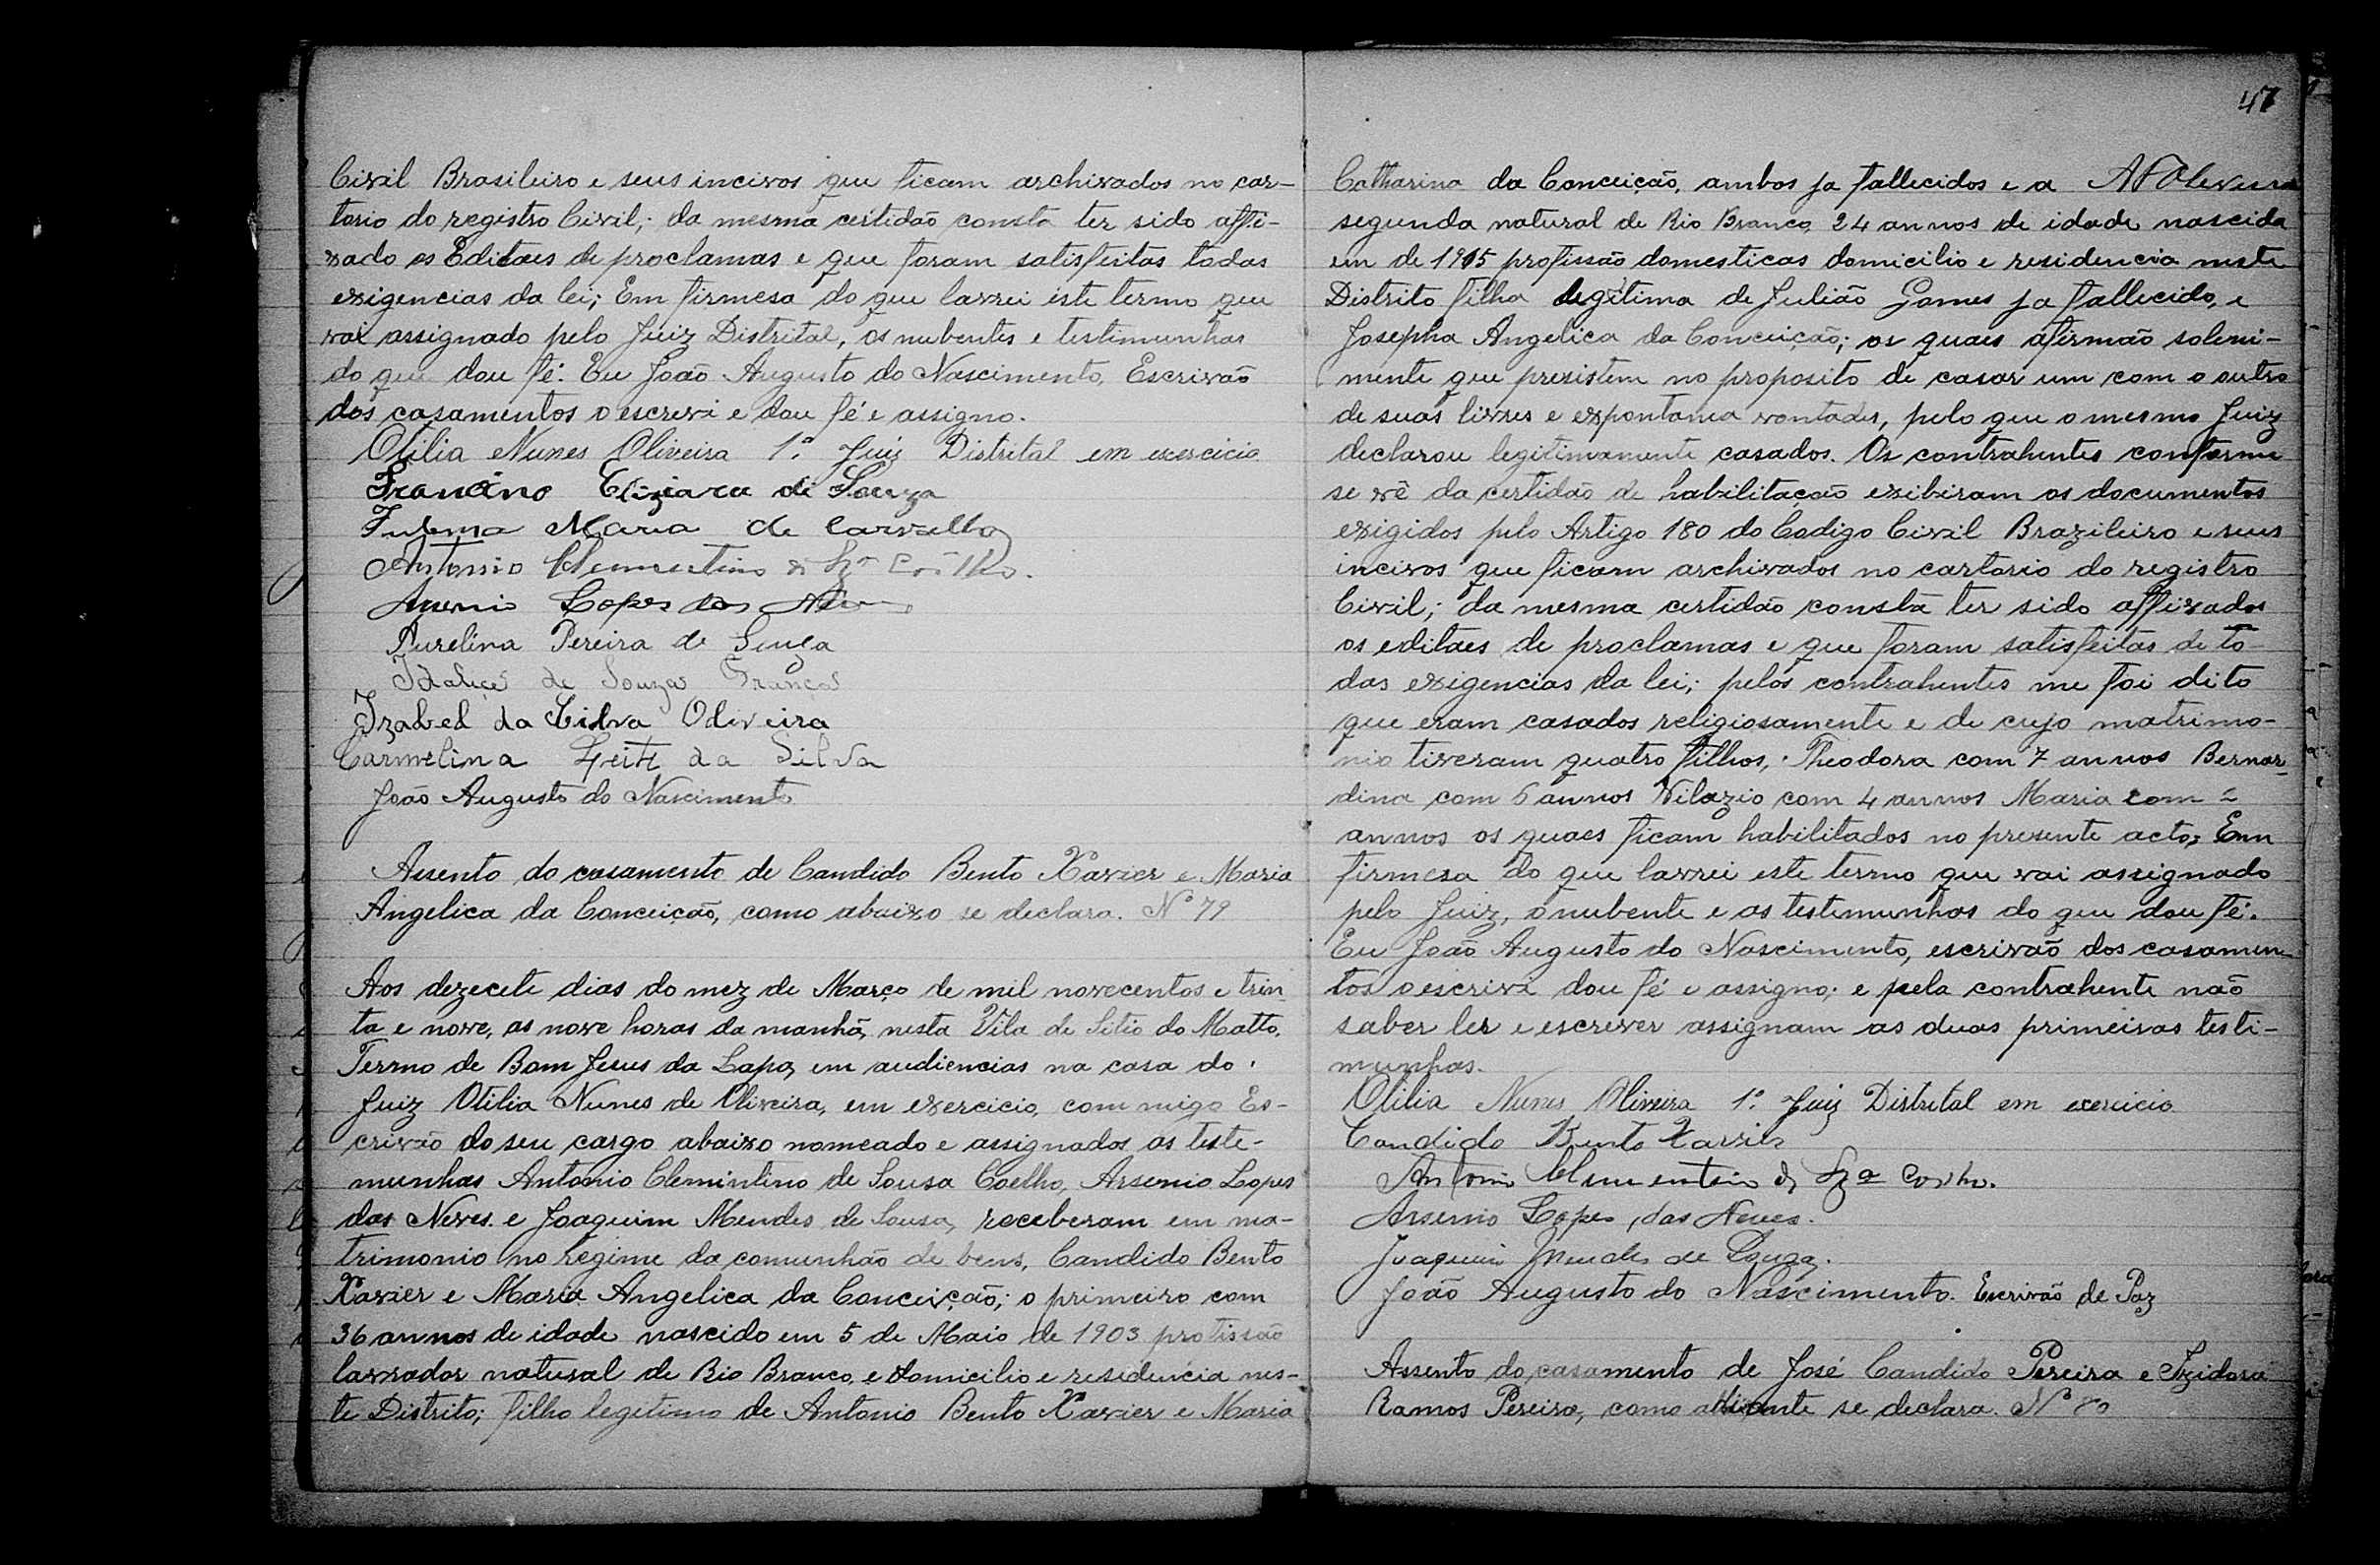 Civil Brasileiro e seus incivos que ficam archivados no car-
torio do registro Civil; da mesma certidão consta ter sido affi-
xado os Editaes de proclamas e que foram satisfeitas todas
exigencias da lei; Em firmesa do que lavrei este termo que
vai assignado pelo Juiz Distrital, os nubentes e testimunhas
do que dou fé. Eu João Augusto do Nascimento, Escrivão
dos casamentos o escrevi e dou fé e assigno.
Otilia Nunes Oliveira 1º Juiz Distrital em exercicio
de Souza
Maria de Carvalho
Antonio Clementino
Lopes das
Aurelina Pereira de Souza
de Souza França
Izabel da Cilva Oliveira
Carmelina Leite da Silva
João Augusto do Nascimento
Assento do casamento de Candido Bento Xavier e Maria
Angelica da Conceição, como abaixo se declara. Nº 79
Aos dezecete dias do mez de Março de mil novecentos e trin-
ta e nove, as nove horas da manhã, nesta Vila de Sitio do Matto,
Termo de Bom Jesus da Lapa, em audiencias na casa do
Juiz Otilia Nunes de Oliveira, em exercicio, commigo Es-
crivão do seu cargo abaixo nomeado e assignados as teste-
munhas Antonio Clemintino de Sousa Coelho, Arsenio Lopes
das Neves e Joaquim Mendes de Sousa, receberam em ma-
trimonio no regime da comunhão de bens, Candido Bento
Xavier e Maria Angelica da Conceição; o primeiro com
36 annos de idade nascido em 5 de Maio de 1903 profissão
lavrador natural de Rio Branco, e domicilio e residencia nes-
te Distrito; filho legitimo de Antonio Bento Xavier e Maria
47
Catharina da Conceição, ambos ja fallecidos e a AFOliveira
segunda natural de Rio Branco, 24 annos de idade nascida
em de 1915 profissão domesticas domicilio e residencia neste
Distrito filha legitima de Julião Gomes ja fallecido, e
Josepha Angelica da Conceição; os quaes afirmão solemi-
mente que presistem no proposito de casar um com o outro
de suas livres e expontania vontades, pelo que o mesmo Juiz
declarou legitimamente casados. Os contrahentes conforme
se vê da certidão de habilitação exibiram os documentos
exigidos pelo Artigo 180 do Codigo Civil Brazileiro e seus
incivos que ficam archivados no cartorio do registro
Civil; da mesma certidão consta ter sido affixados
os editaes de proclamas e que foram satisfeitas de to-
das exigencias da lei; pelos contrahentes me foi dito
que eram casados religiosamente e de cujo matrimo-
nio tiveram quatro filhos, Theodora com 7 annos Bernar-
dina com 6 annos Vilazio com 4 annos Maria com 2
annos os quaes ficam habilitados no presente acto; Em
firmesa do que lavrei este termo que vai assignado
pelo Juiz, o nubente e as testemunhas do que dou fé.
Eu João Augusto do Nascimento, escrivão dos casamen-
tos o escrivi dou fé e assigno; e pela contrahente não
saber ler e escrever assignam as duas primeiras testi-
munhas.
Otilia Nunes Oliveira 1º Juiz Distrital em exercicio
Candido Bento Xavier
Antonio
Arsenio Lopes das Neves.
Joaquim Mendes de Souza.
João Augusto do Nascimento. Escrivão de Paz
Assento do casamento de José Candido Pereira e Izidora
Ramos Pereira, como adiante se declara. Nº 80